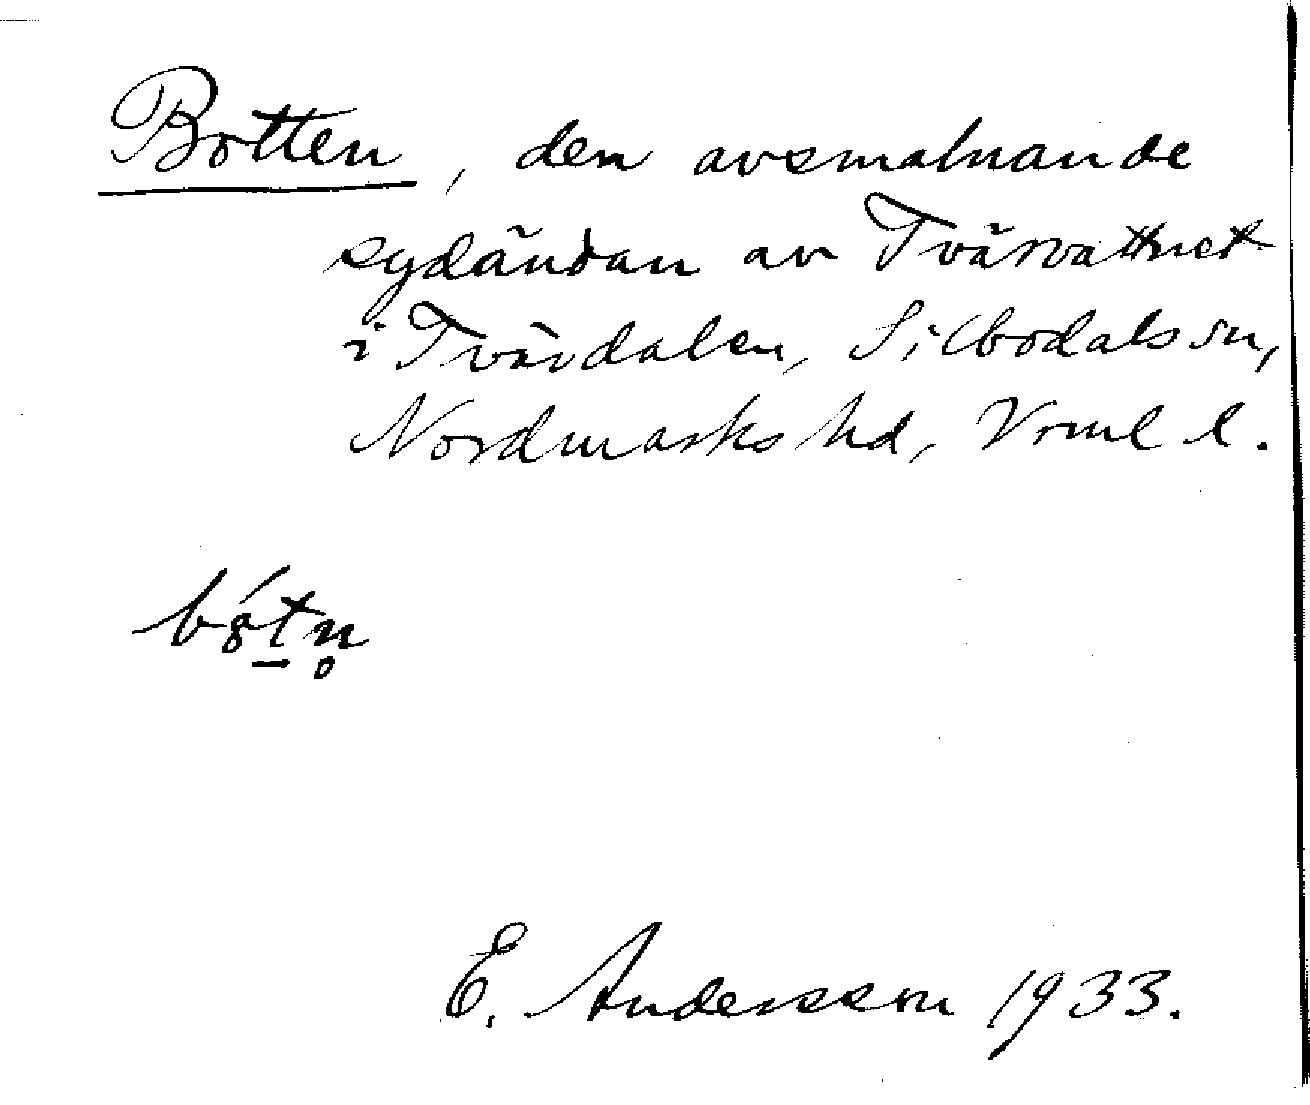 Botten, den avsmalnande
sydändan av Tvärvattnet
i Tvärdalen, Silbodals sn,
Nordmarks hd, Vrml l.
bótn̥
E. Andersson 1933.